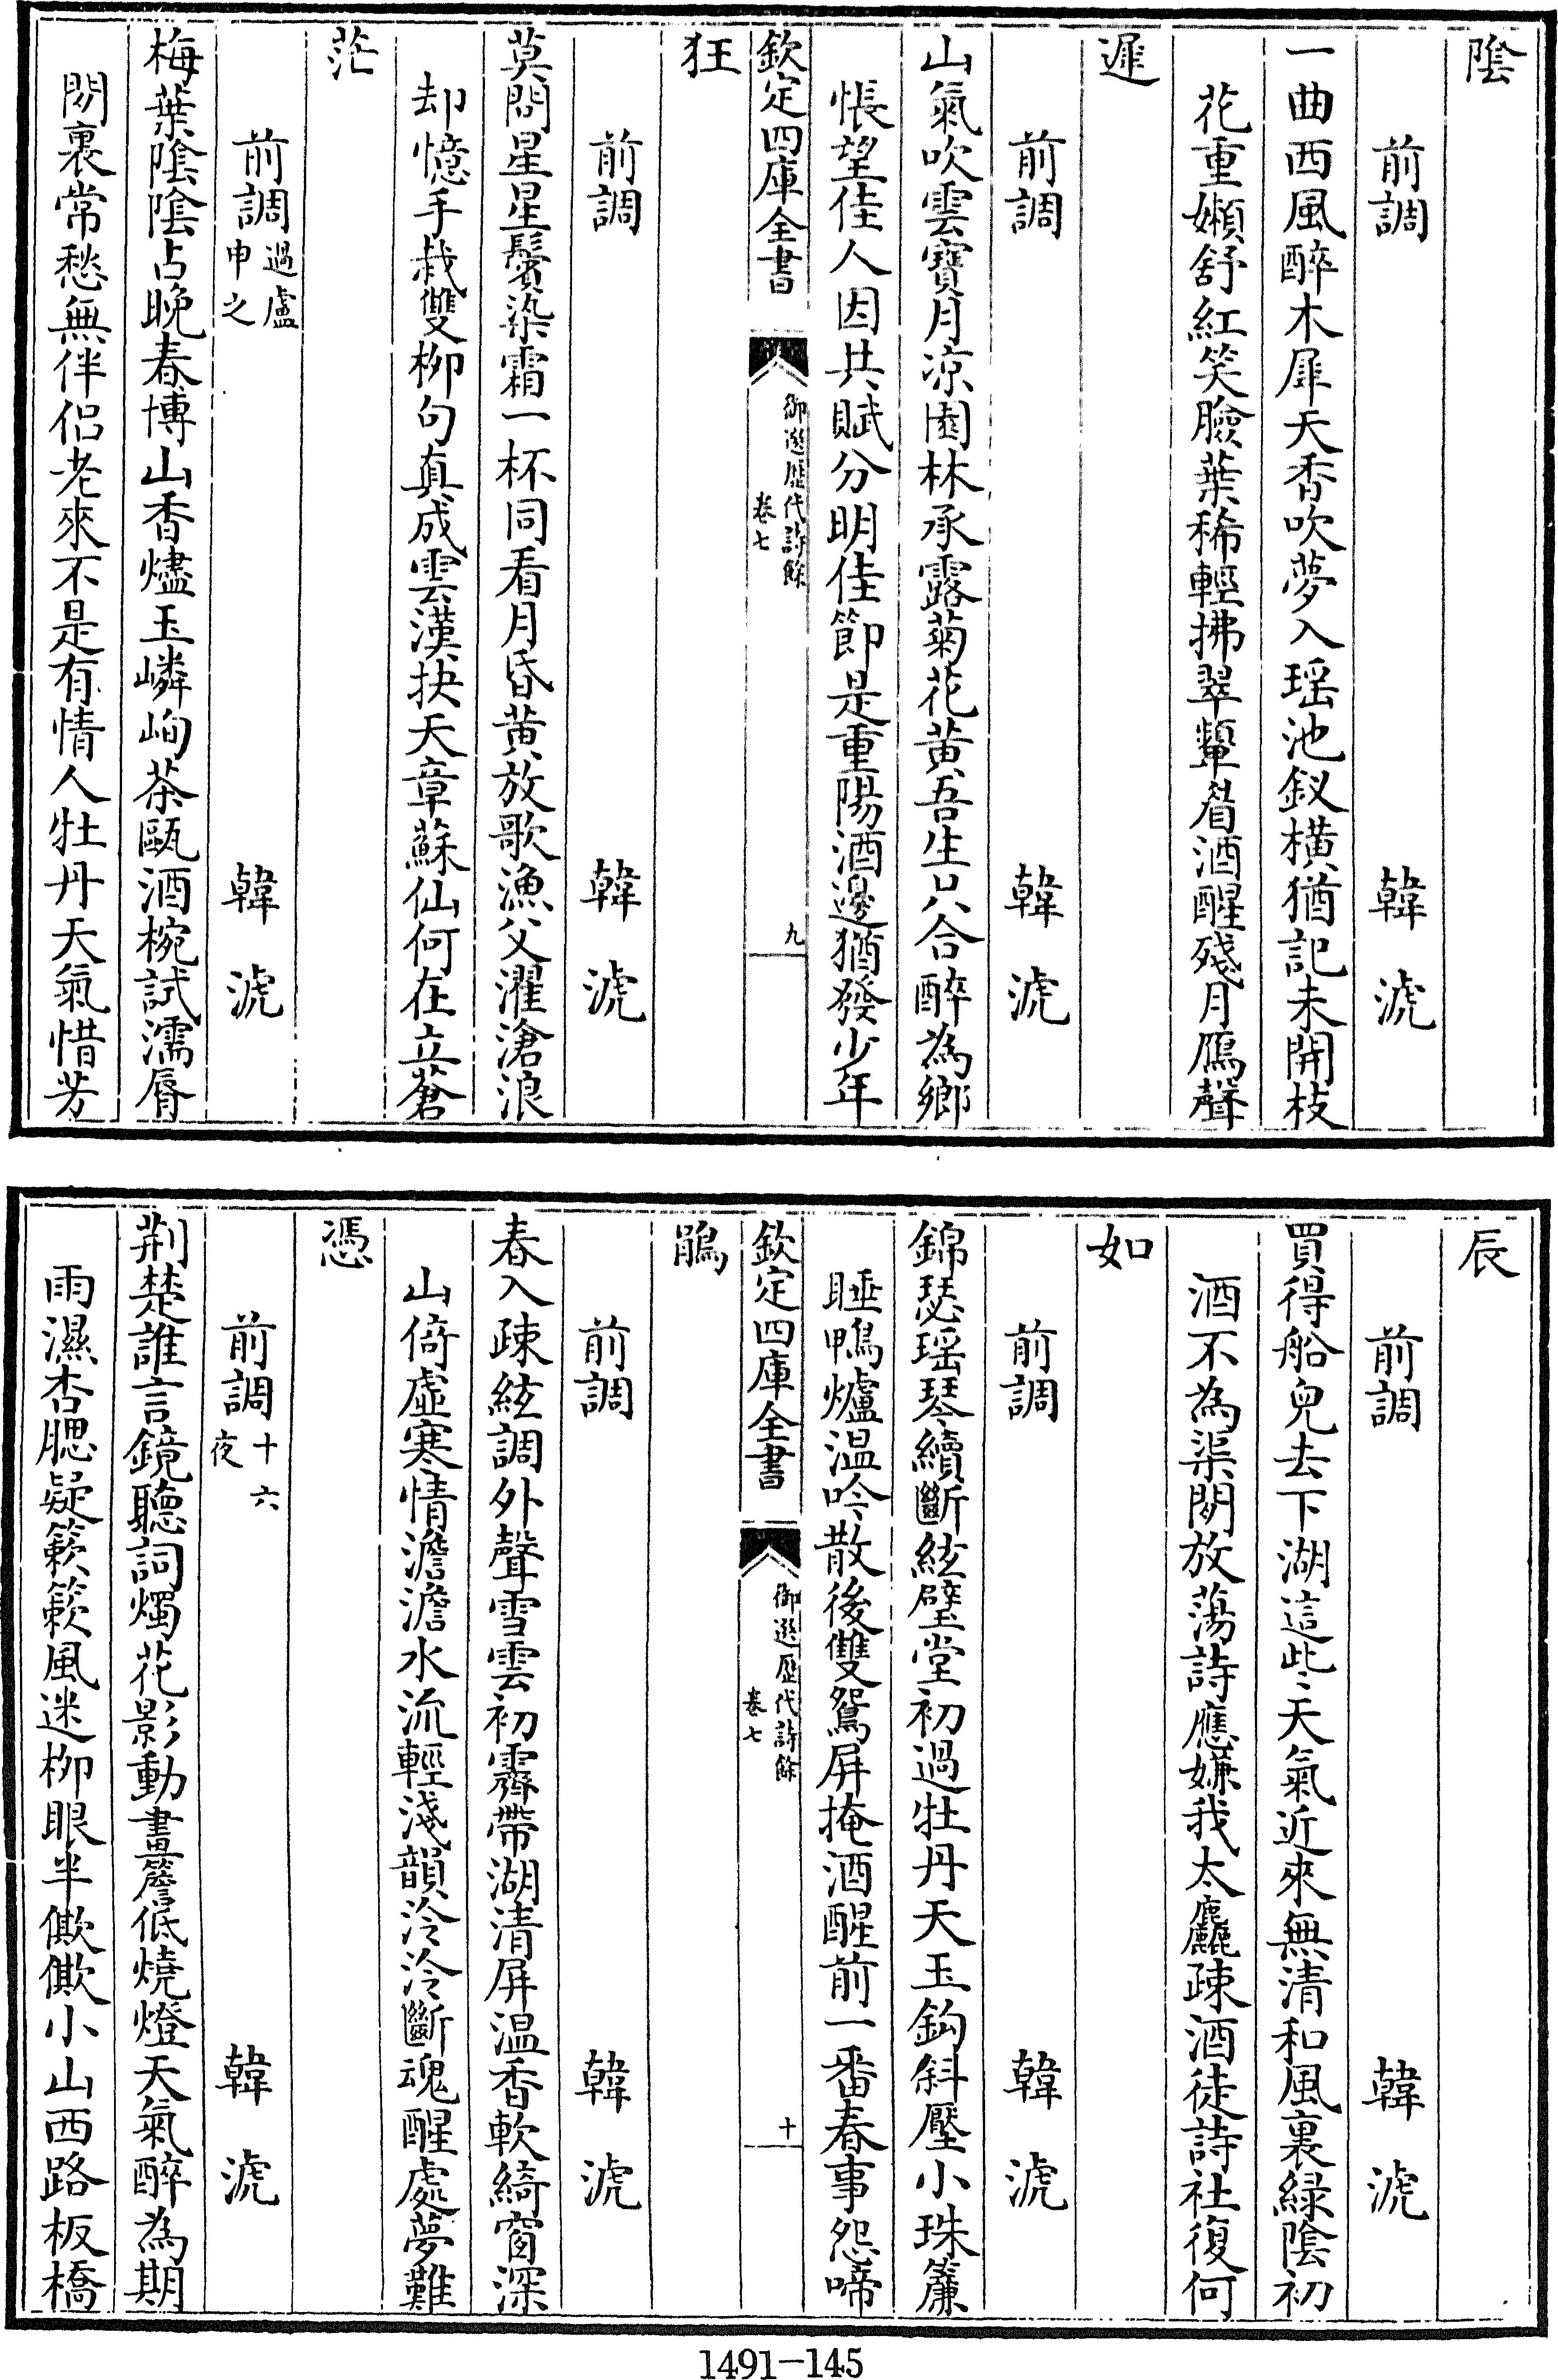 陰
前調　韓淲
一曲西風醉木犀天香吹夢入瑶池釵横猶記未開枝
花重嬾舒紅笑臉葉稀輕拂翠顰眉酒醒殘月鴈聲
遲
前調　韓淲
山氣吹雲寳月凉園林承露菊花黄吾生只合醉為鄉
悵望佳人因共賦分明佳節是重陽酒邊猶發少年
欽定四庫全書
御選歴代詩餘
卷七
九
狂
前調　韓淲
莫問星星鬢染霜一杯同看月昏黄放歌漁父濯滄浪
却憶手栽雙柳句真成雲漢抉天章蘇仙何在立蒼
茫
前調過盧申之　韓淲
梅葉陰陰占晚春博山香燼玉嶙峋茶甌酒椀試濡脣
閒裏常愁無伴侣老來不是有情人牡丹天氣惜芳
辰
前調　韓淲
買得船兒去下湖這些天氣近來無清和風裏緑陰初
酒不為渠閒放蕩詩應嫌我太麤疎酒徒詩社復何
如
前調　韓淲
錦瑟瑶琴續斷絃璧堂初過牡丹天玉鈎斜壓小珠簾
睡鴨爐温吟散後雙鴛屏掩酒醒前一番春事怨啼
欽定四庫全書
御選歴代詩餘
卷七
十
鵑
前調　韓淲
春入疎絃調外聲雪雲初霽帶湖清屏温香軟綺窗深
山倚虚寒情澹澹水流輕淺韻泠泠斷魂醒處夢難
憑
前調十六夜　韓淲
荆楚誰言鏡聽詞燭花影動畫簷低燒燈天氣醉為期
雨濕杏腮疑簌簌風迷柳眼半僛僛小山西路板橋
1491-145